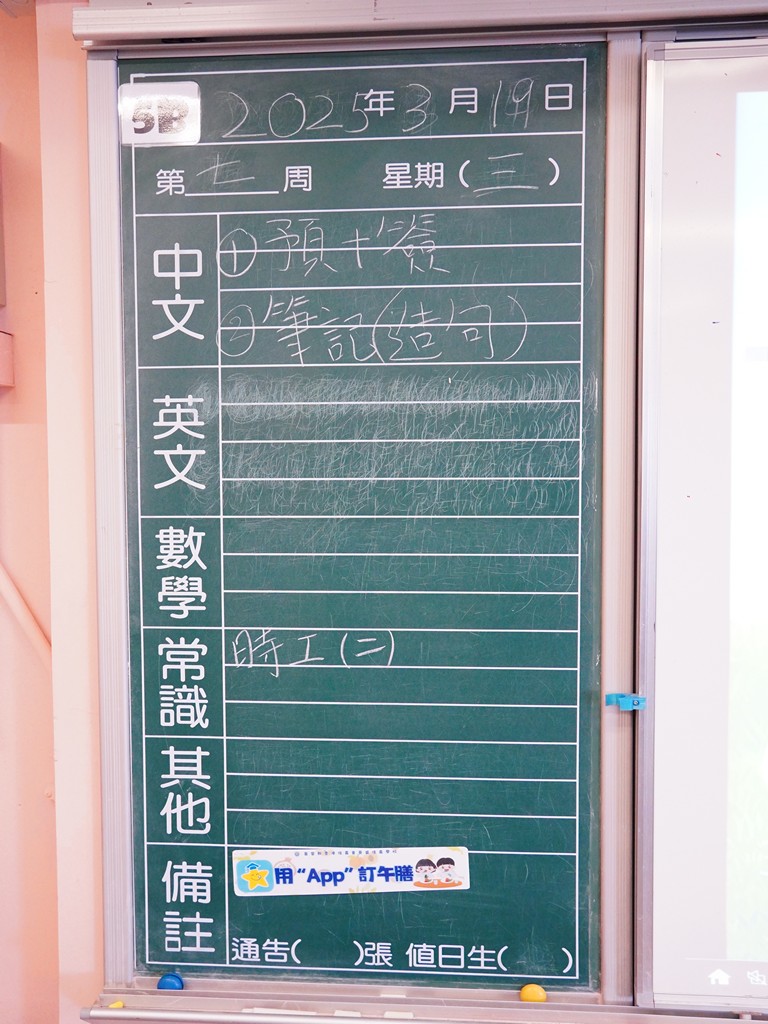 5B 2025年3月19日
第七周 星期(三)
中文
①預+簽
②筆記(造句)
英文
數學
常識
時工(二)
其他
備註
用“App”訂午膳
通告( )張 值日生( )